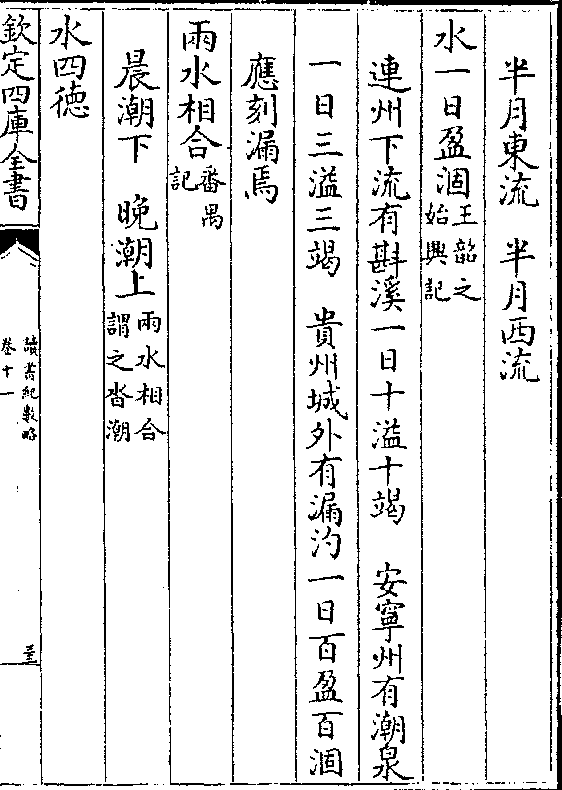 半月東流　半月西流
水一日盈涸王韶之始興記
連州下流有斟溪一日十溢十竭　安寧州有潮泉
一日三溢三竭　貴州城外有漏汋一日百盈百涸
應刻漏焉
兩水相合番禺記
晨潮下　晚潮上兩水相合謂之沓潮
水四徳
欽定四庫全書
讀書紀數略
卷十一